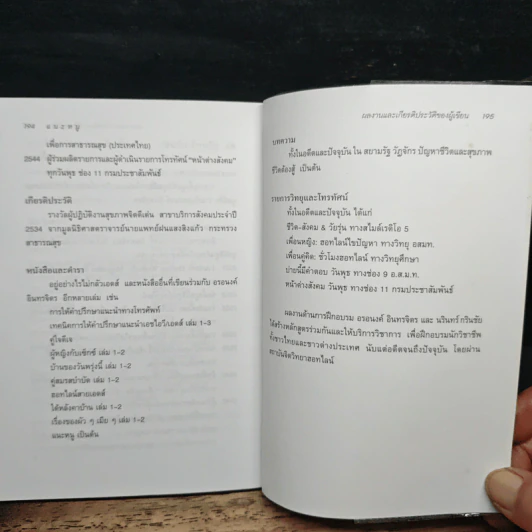 194 แนะหนู
เพื่อการสาธารณสุข (ประเทศไทย)
2544 ผู้ร่วมผลิตรายการและผู้ดำเนินรายการโทรทัศน์ "หน้าต่างสังคม"
ทุกวันพุธ ช่อง 11 กรมประชาสัมพันธ์
เกียรติประวัติ
รางวัลผู้ปฏิบัติงานสุขภาพจิตดีเด่น สาขาบริการสังคมประจำปี
2534 จากมูลนิธิศาสตราจารย์นายแพทย์ฝนแสงสิงแก้ว กระทรวง
สาธารณสุข
หนังสือและตำรา
อยู่อย่างไรไม่กลัวเอดส์ และหนังสืออื่นที่เขียนร่วมกับ อรอนงค์
อินทรจิตร อีกหลายเล่ม เช่น
การให้คำปรึกษาแนะนำทางโทรศัพท์
เทคนิคการให้คำปรึกษาแนะนำเอชไอวี/เอดส์ เล่ม 1-3
คู่ใจดีเจ
ผู้หญิงกับเซ็กซ์ เล่ม 1-2
บ้านของวันพรุ่งนี้ เล่ม 1-2
คู่สมรสบำบัด เล่ม 1-2
ฮอทไลน์สายเอดส์
ใต้หลังคาบ้าน เล่ม 1-2
เรื่องของผัว ๆ เมีย ๆ เล่ม 1-2
แนะหนู เป็นต้น
ผลงานและเกียรติประวัติของผู้เขียน 195
บทความ
ทั้งในอดีตและปัจจุบัน ใน สยามรัฐ วัฏจักร ปัญหาชีวิตและสุขภาพ
ชีวิตต้องสู้ เป็นต้น
รายการวิทยุและโทรทัศน์
ทั้งในอดีตและปัจจุบัน ได้แก่
ชีวิต-สังคม & วัยรุ่น ทางสไมล์เรดิโอ 5
เพื่อนหญิง: ฮอทไลน์ไขปัญหา ทางวิทยุ อสมท.
เพื่อนคู่คิด: ชั่วโมงฮอทไลน์ ทางวิทยุศึกษา
บ่ายนี้มีคำตอบ วันพุธ ทางช่อง 9 อ.ส.ม.ท.
หน้าต่างสังคม วันพุธ ทางช่อง 11 กรมประชาสัมพันธ์
ผลงานด้านการฝึกอบรม อรอนงค์ อินทรจิตร และ นรินทร์ กรินชัย
ได้สร้างหลักสูตรร่วมกันและให้บริการวิชาการ เพื่อฝึกอบรมนักวิชาชีพ
ทั้งชาวไทยและชาวต่างประเทศ นับแต่อดีตจนถึงปัจจุบัน โดยผ่าน
สถาบันจิตวิทยาฮอทไลน์